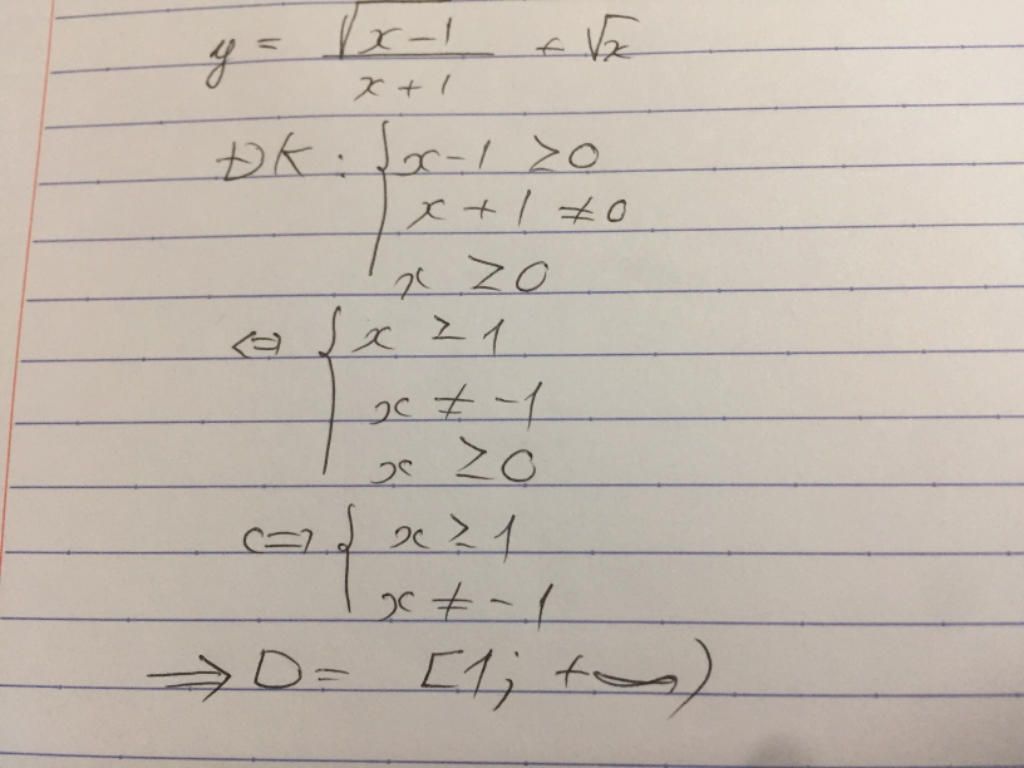 y = √(x-1)/(x+1) + √x
ĐK : { x-1 ≥0
x + 1 ≠0
x ≥0
<=> { x ≥ 1
x ≠ -1
x ≥0
<=> { x ≥ 1
x ≠ -1
=> D = [1; +∞)